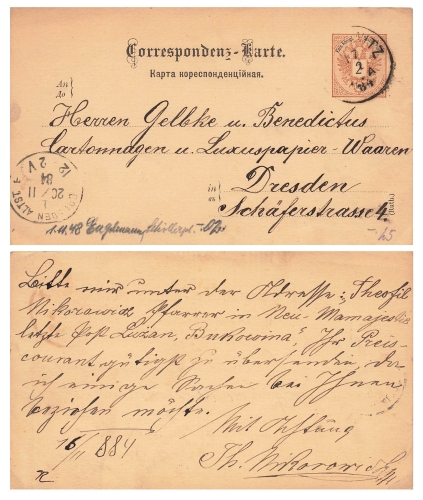 Correspondenz-Karte.
Карта кореспонденційная.
An
До
Herren Gelbke u. Benedictus
Cartonnagen u. Luxuspapier-Waaren
in
въ
Dresden
Schäferstrasse 4.
(Ruth.)
2
84
DRESDEN ALTST.
20
II
84
2V
1.11.48 Engelmann
-.25
Bitte mir unter der Adresse: "Theofil
Nikorowicz Pfarrer in Neu-Mamajestie
letzte Post Lužan, Bukowina", Ihr Preis-
courant gütigst zu übersenden da
ich einige Sachen bei Ihnen
beziehen möchte.
Mit Achtung
16/11 884
Th. Nikorowicz